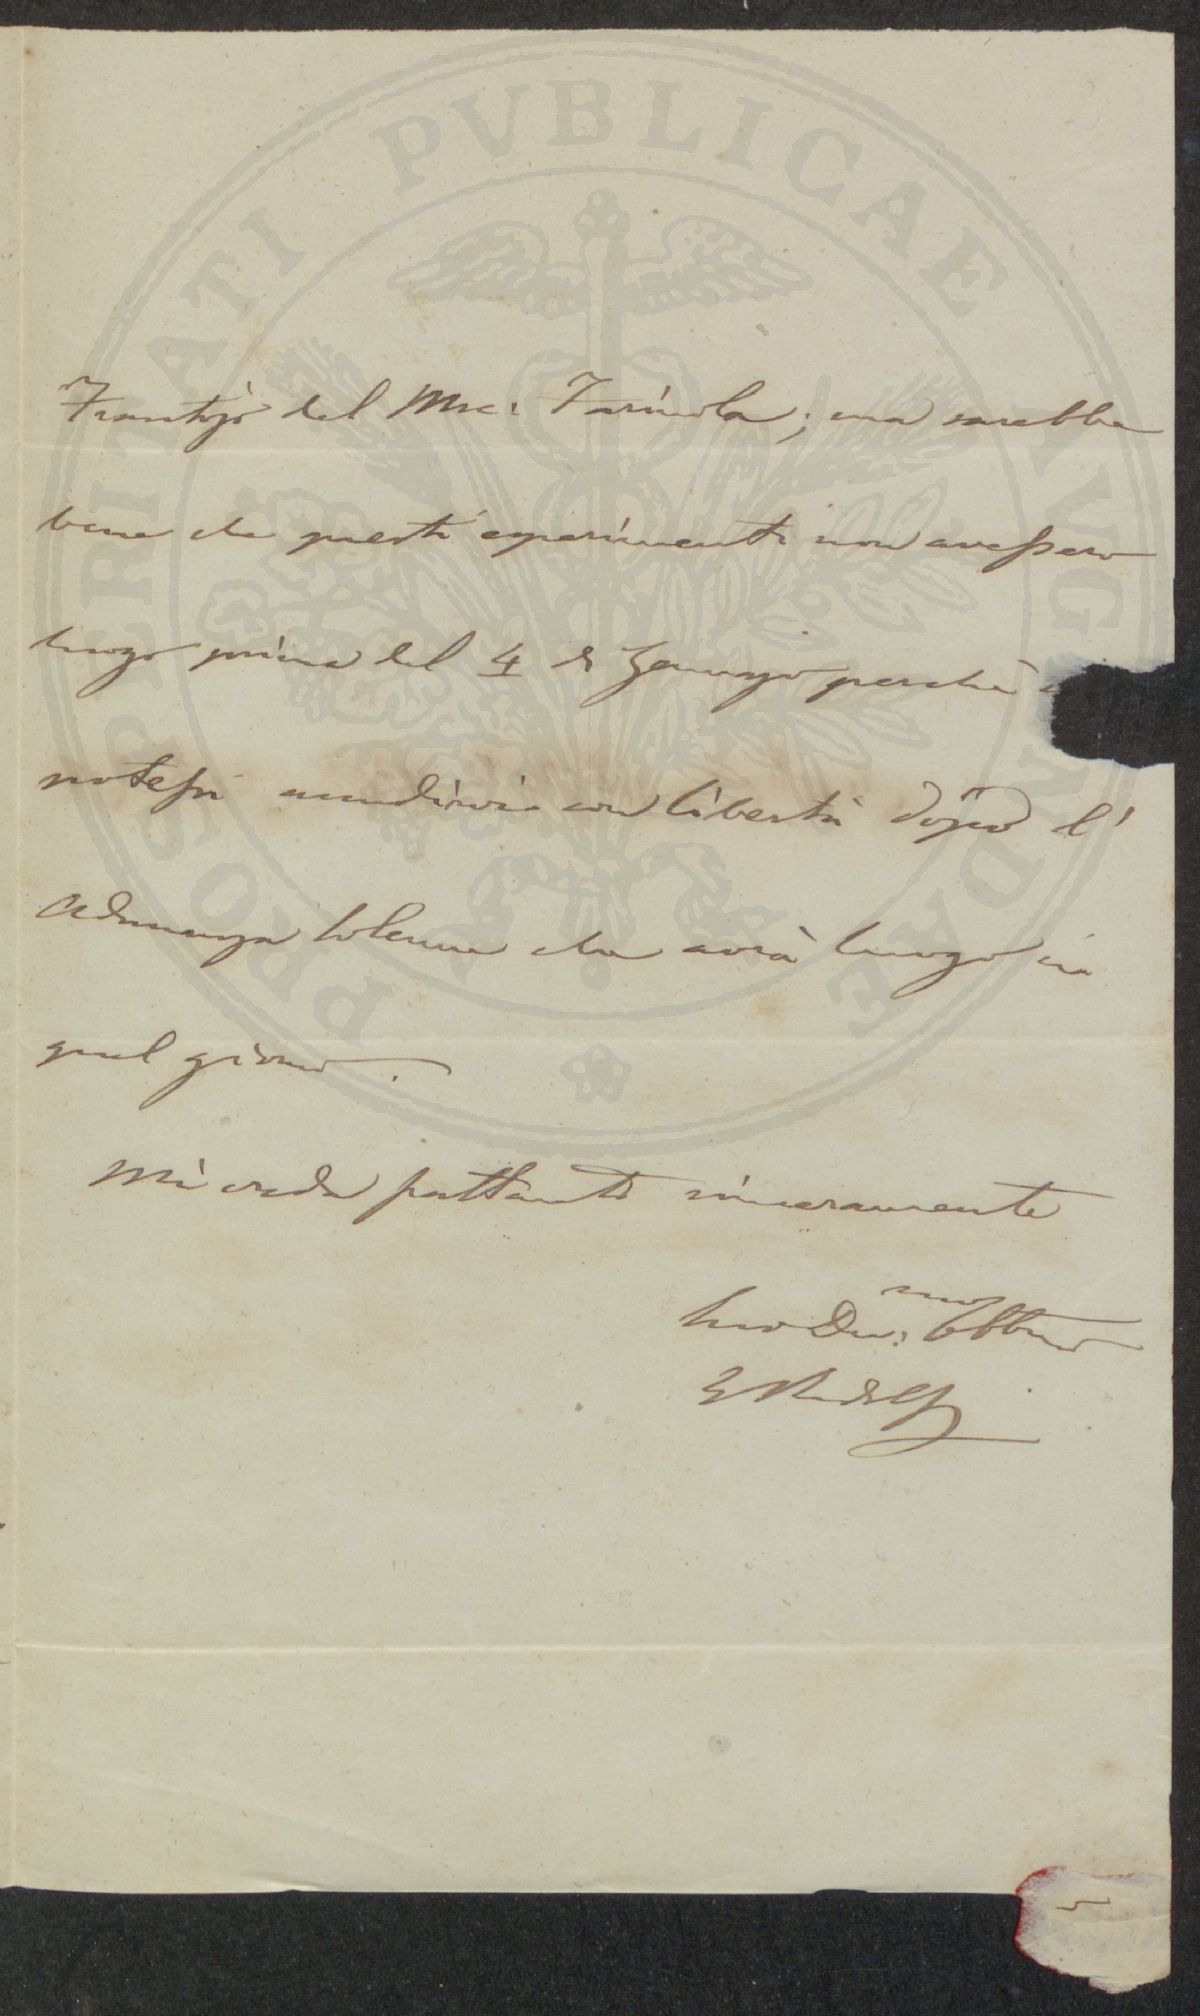 PROSPERITATI PVBLICAE AVGENDAE
Frantojo del Mse: Farinola; ma sarebbe
bene che questi esperimenti non avessero
luogo prima del 4 di Gennajo perchè
potessi accudirvi con libertà dopo l'
Adunanza solenne che avrà luogo in
quel giorno.
Mi creda frattanto sinceramente
Suo Dev:mo Obbmo